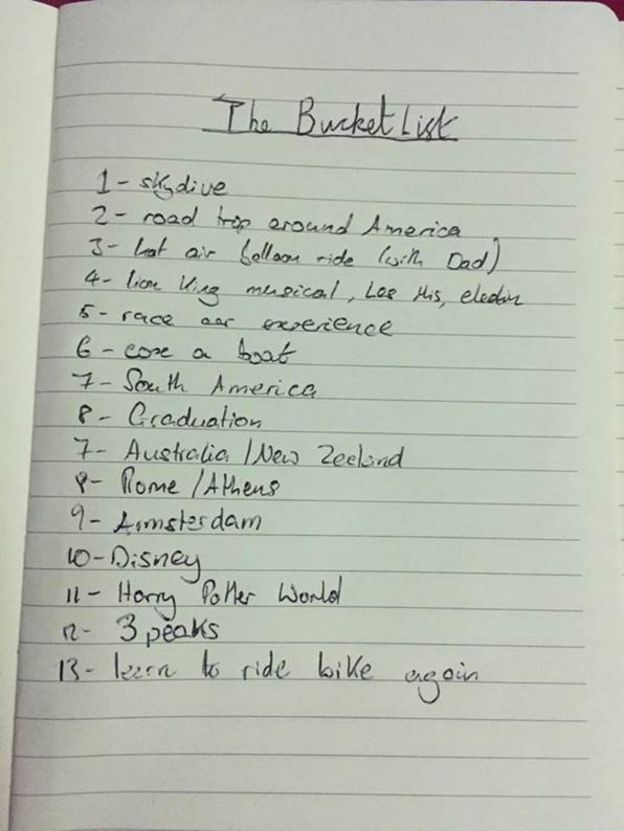 The Bucket List
1 - skydive
2 - road trip around America
3 - hot air balloon ride (with Dad)
4 - lion King musical, Les Mis,
5 - race car experience
6 - a boat
7 - South America
8 - Graduation
7 - Australia / New Zeeland
8 - Rome / Athens
9 - Amsterdam
10 - Disney
11 - Harry Potter World
12 - 3 peaks
13 - learn to ride bike again